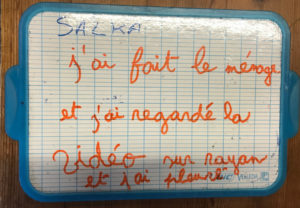 SALKA
j'ai fait le ménage
et j'ai regardé la
vidéo sur rayan
et j'ai pleuré